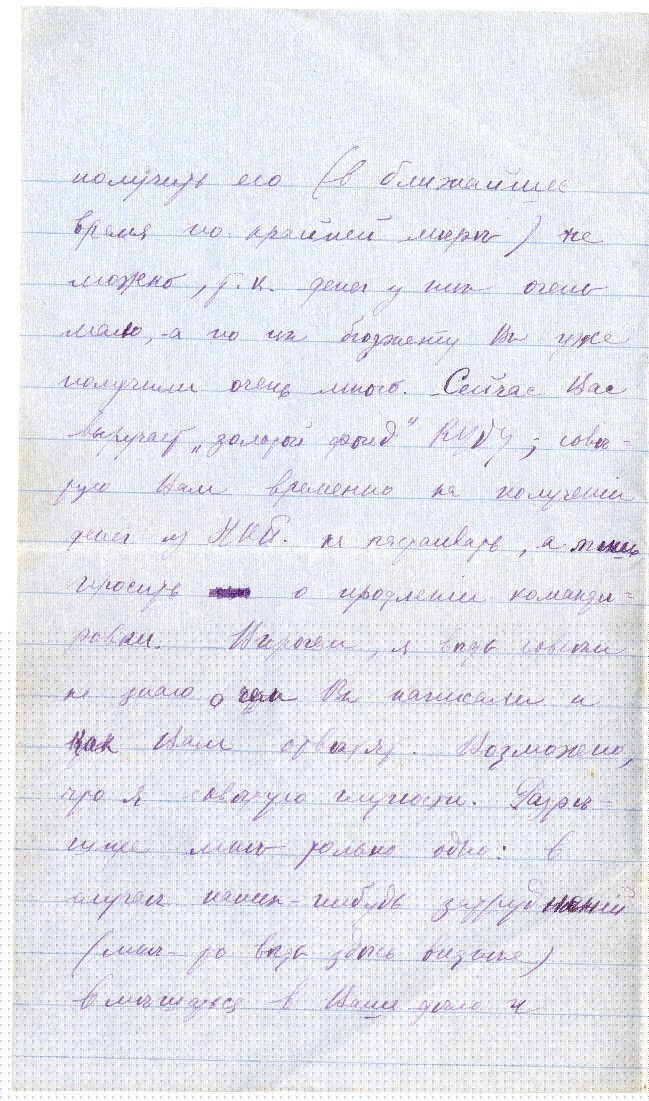 получить его (в ближайшее
время по крайней мере) не
можно, т.к. денег у них очень
мало, а по их бюджету Вы уже
получили очень много. Сейчас Вас
выручает „золотой фонд" КУБУ; совѣ-
тую Вам временно на полученіи
денег из не настаивать, а лишь
просить о продленіи команди-
ровки. Впрочем, я ведь совсем
не знаю о чем Вы писали и
как Вам отвѣтят. Возможно,
что я совѣтую глупости. Разрѣ-
шите мнѣ только одно: в
случаѣ каких-нибудь затрудненій
(мнѣ-то вѣдь здѣсь виднѣе)
вмѣшаться в Ваше дѣло и